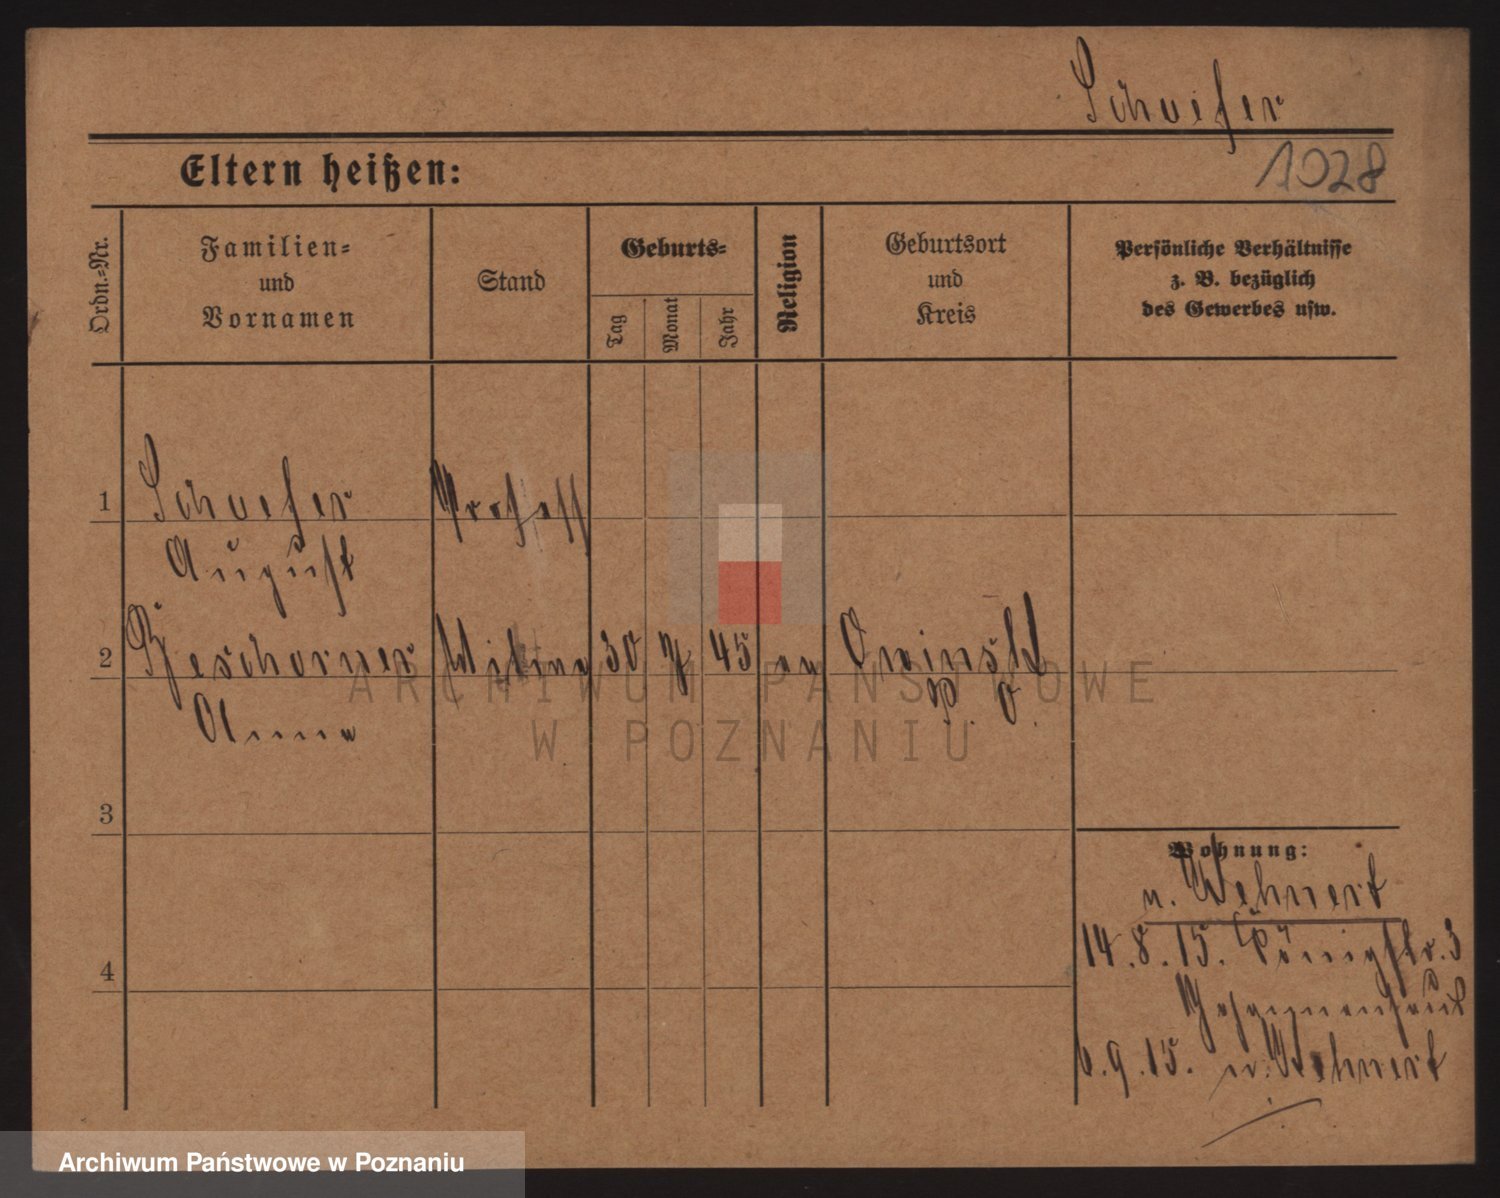 Schaefer
Eltern heißen:
1028
Ordn.-Nr.
Familien-
und
Vornamen
Stand
Geburts-
Tag
Monat
Jahr
Religion
Geburtsort
und
Kreis
Persönliche Verhältnisse
z. B. bezüglich
des Gewerbes usw.
1
Schaefer
August
2
Beschorner
Anna
Witwe
30
45
ev
Owinsk
P. O.
3
4
Wohnung:
n. Wehnert
14.8.15. Königstr. 3
6.9.15. n. Wehnert
ARCHIWUM PAŃSTWOWE
W POZNANIU
Archiwum Państwowe w Poznaniu